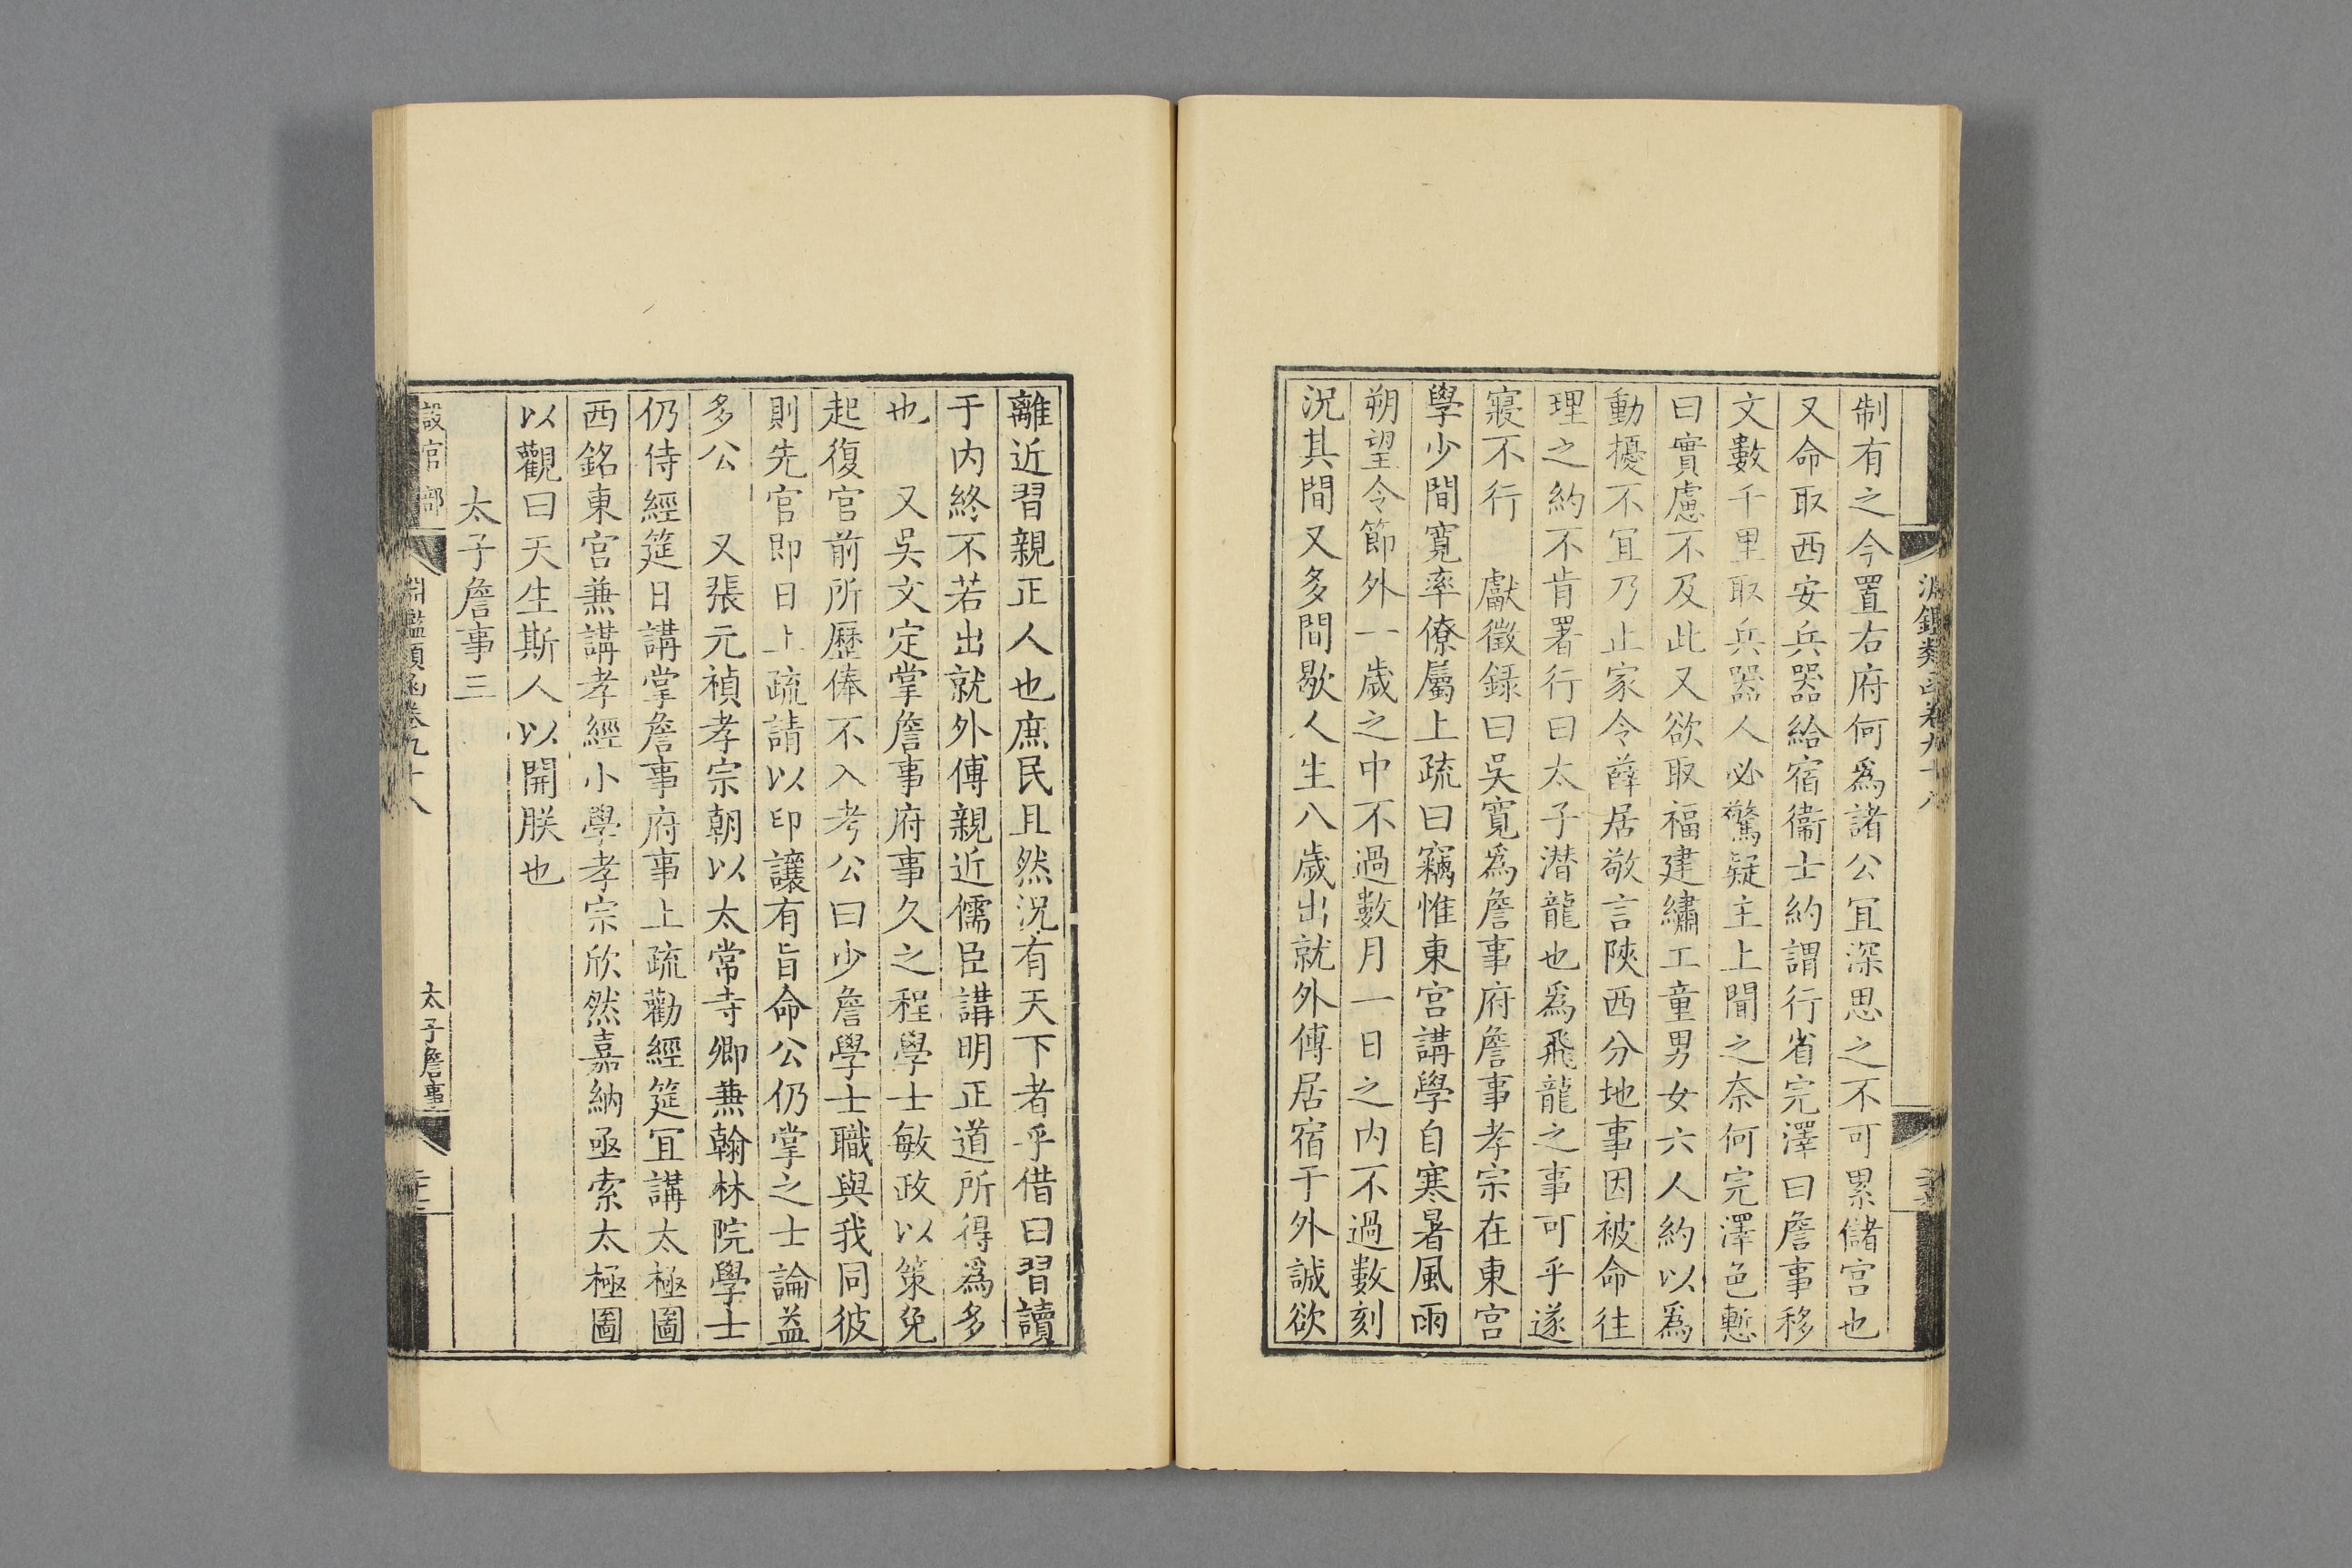 淵鑑類函卷九十八
制有之今置右府何爲諸公宜深思之不可累儲宮也
又命取西安兵器給宿衞士約謂行省完澤曰詹事移
文數千里取兵器人必驚疑主上聞之奈何完澤色慙
曰實慮不及此又欲取福建繡工童男女六人約以爲
動擾不宜乃止家令薛居敬言陝西分地事因被命往
理之約不肯署行曰太子潛龍也爲飛龍之事可乎遂
寢不行 獻徵録曰吳寬爲詹事府詹事孝宗在東宮
學少間寬率僚屬上疏曰竊惟東宮講學自寒暑風雨
朔望令節外一歲之中不過數月一日之內不過數刻
況其間又多間歇人生八歲出就外傅居宿于外誠欲
離近習親正人也庶民且然況有天下者乎借曰習讀
于內終不若出就外傅親近儒臣講明正道所得爲多
也 又吳文定掌詹事府事久之程學士敏政以策免
起復官前所歷俸不入考公曰少詹學士職與我同彼
則先官即日上疏請以印讓有旨命公仍掌之士論益
多公 又張元禎孝宗朝以太常寺卿兼翰林院學士
仍侍經筵日講掌詹事府事上疏勸經筵宜講太極圖
西銘東宮兼講孝經小學孝宗欣然嘉納亟索太極圖
以觀曰天生斯人以開朕也
太子詹事三
設官部
淵鑑類函卷九十八
太子詹事